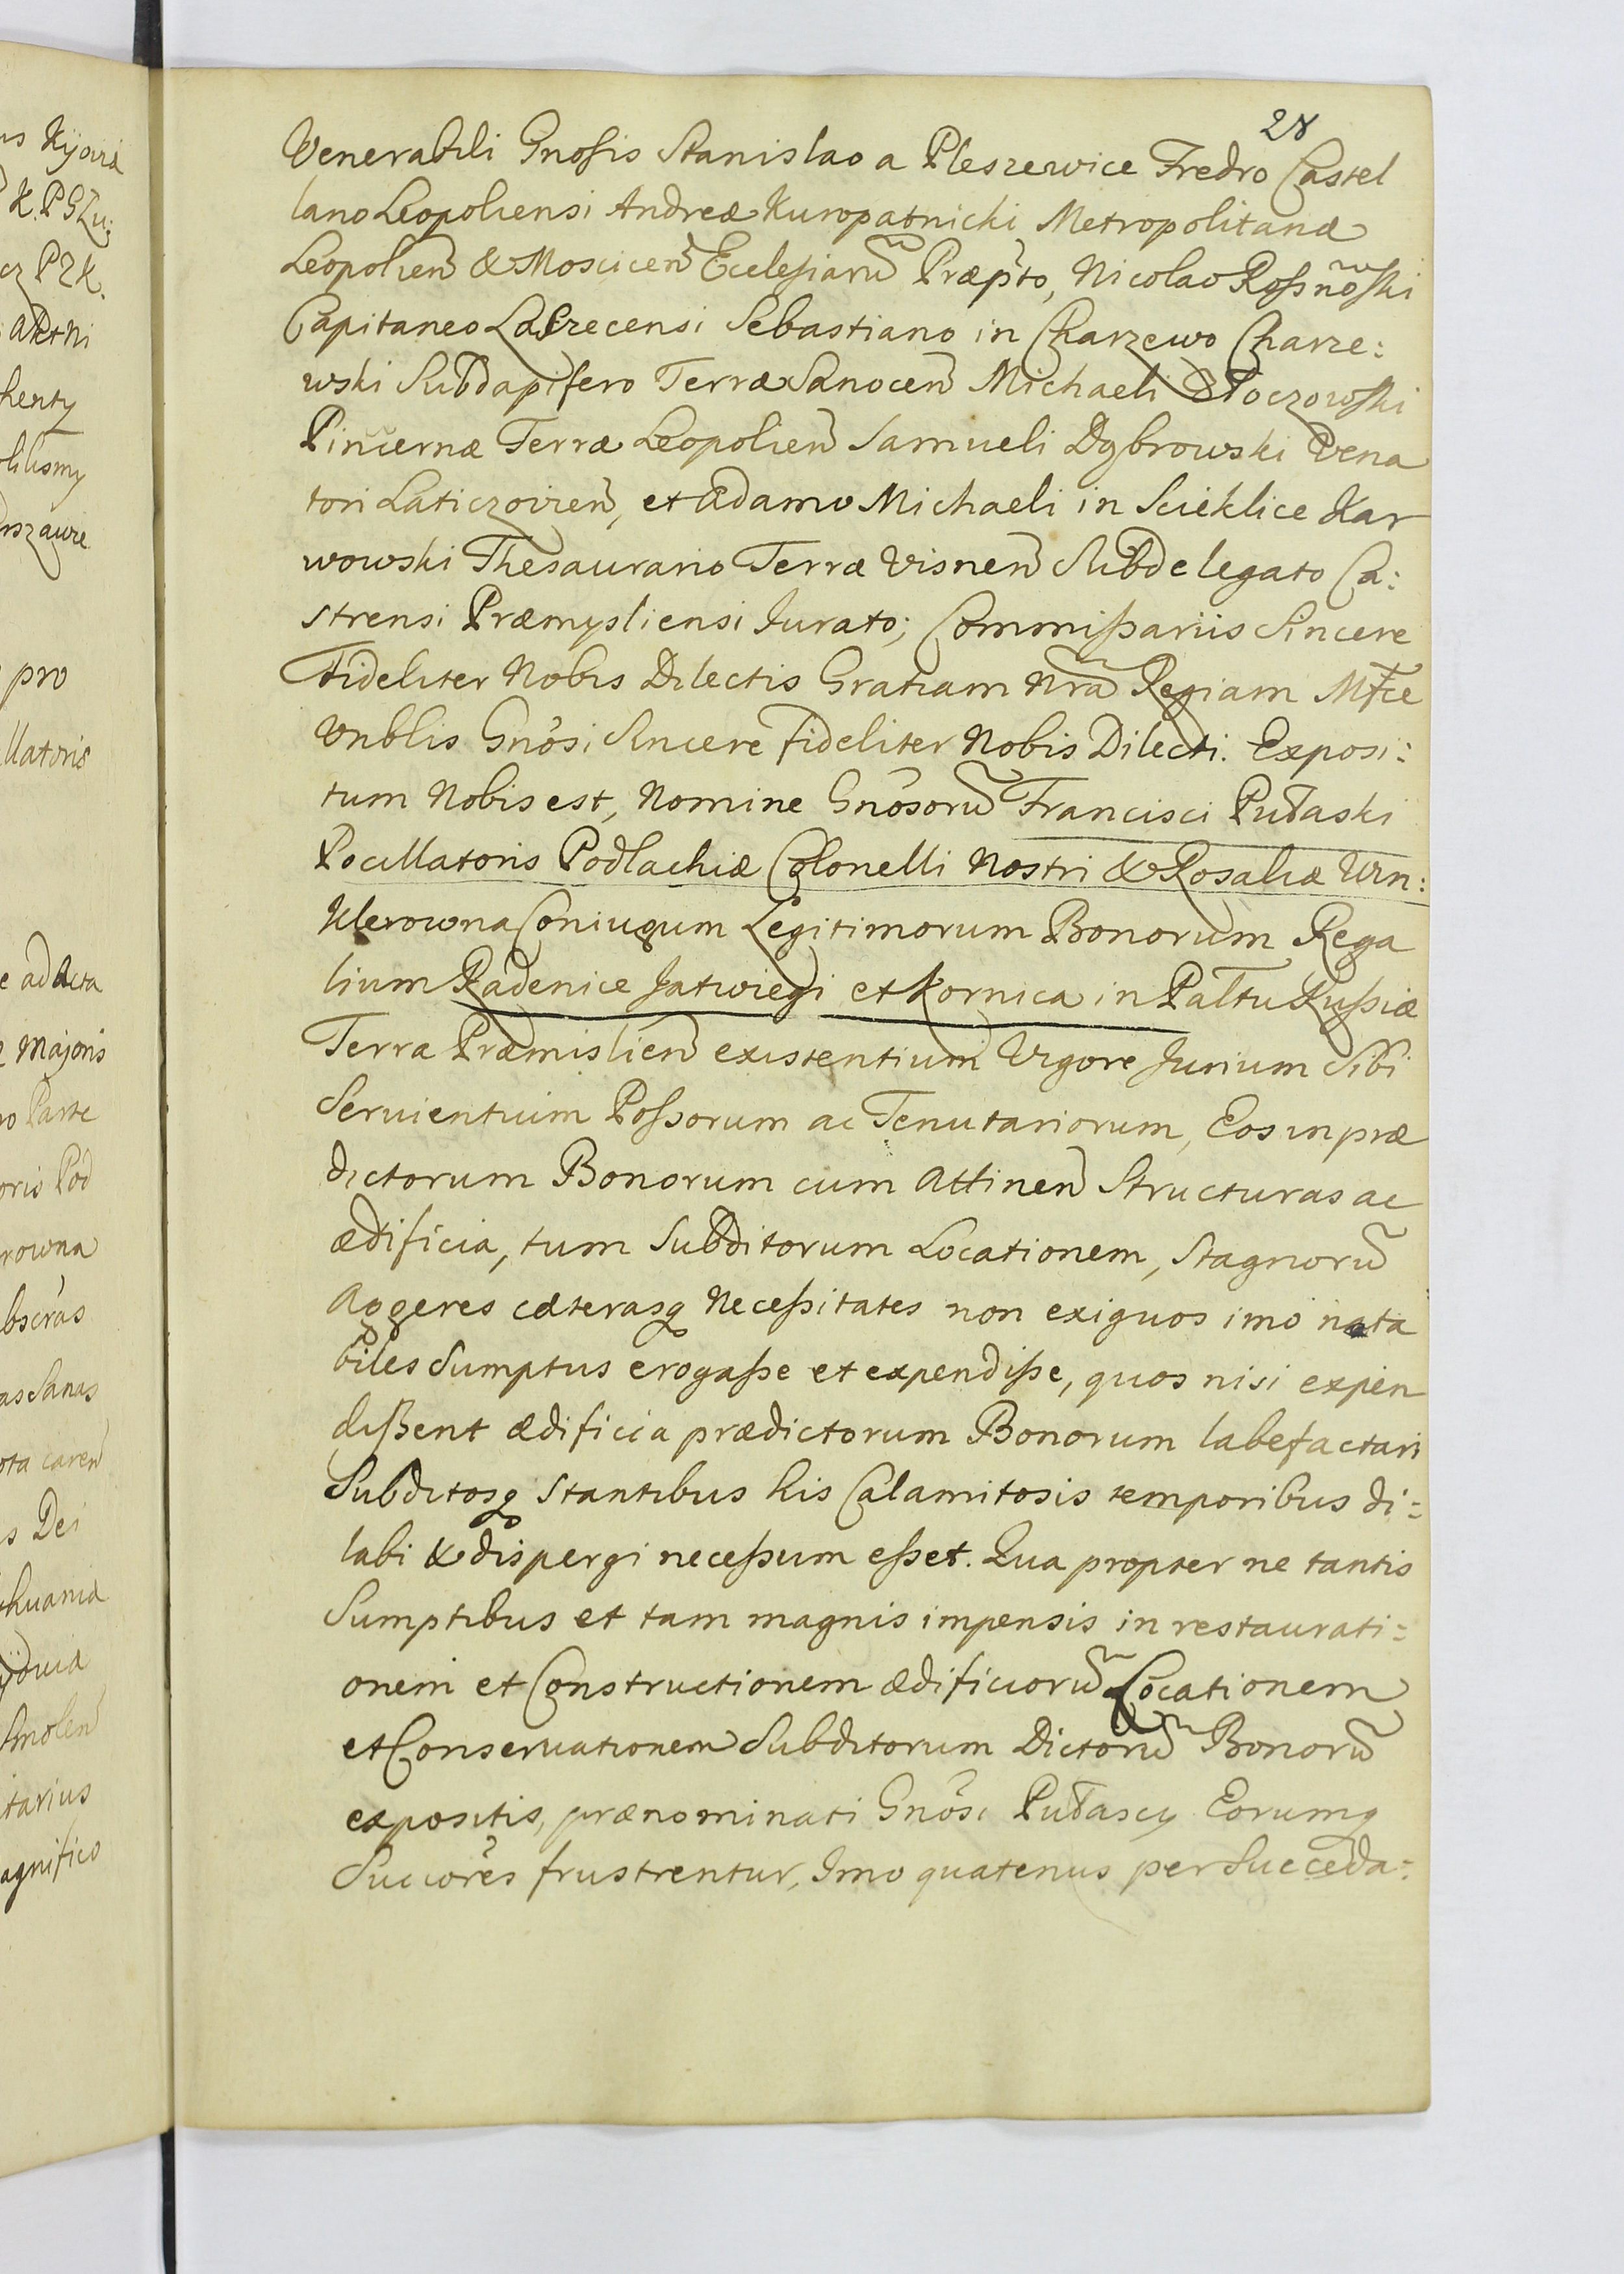 28
Venerabili Gnosis Stanislao a Pleszewice Fredro Castel
lano Leopoliensi Andreæ Kuropatnicki Metropolitanæ
Leopolien̄ & Moscicen̄ Ecclesiarū Præpto, Nicolao Roſsnoſki
Capitaneo Sebastiano in Charzewo Charze:
wski Subdapifero Terræ Sanocen̄ Michaeli
Pincernæ Terræ Leopolien̄ Samueli Dąbrowski Vena
tori Laticzovien̄, et Adamo Michaeli in Scieklice Kar
wowski Thesaurario Terræ Visnen̄ Subdelegato Ca:
strensi Præmysliensi Jurato; Commiſsariis Sincere
Fideliter Nobis Dilectis Gratiam Nrā Regiam Mfce
Vnblis Gnōsi Sincere fideliter Nobis Dilecti. Exposi:
tum Nobis est, Nomine Gnōsorū Francisci Pułaski
Pocillatoris Podlachiæ Colonelli Nostri & Rosaliæ Win:
klerowna Coniugum Legitimorum Bonorum Rega
lium Radenice Jatwiegi et Kornica in Paltu Ruſsiæ
Terra Præmislien̄ existentium Vigore Jurium Sibi
Servientium Poſsorum ac Tenutariorum, Eos in præ
dictorum Bonorum cum Attinen̄ Structuras ac
ædificia, tum Subditorum Locationem, Stagnorū
Aggeres cæterasq Neceſsitates non exiguos imo nota
biles Sumptus erogaſse et expendiſse, quos nisi expen
diſsent ædificia prædictorum Bonorum labefactari
Subditosq stantibus his Calamitosis temporibus di=
labi & dispergi neceſsum eſset. Qua propter ne tantis
Sumptibus et tam magnis impensis in restaurati=
onem et Constructionem ædificiorū Locationem
et Conservationem Subditorum Dictorū Bonorū
expositis, prænominati Gnōsi Pułascy Eorumq
Succores frustrentur, Imo quatenus per Succeda=